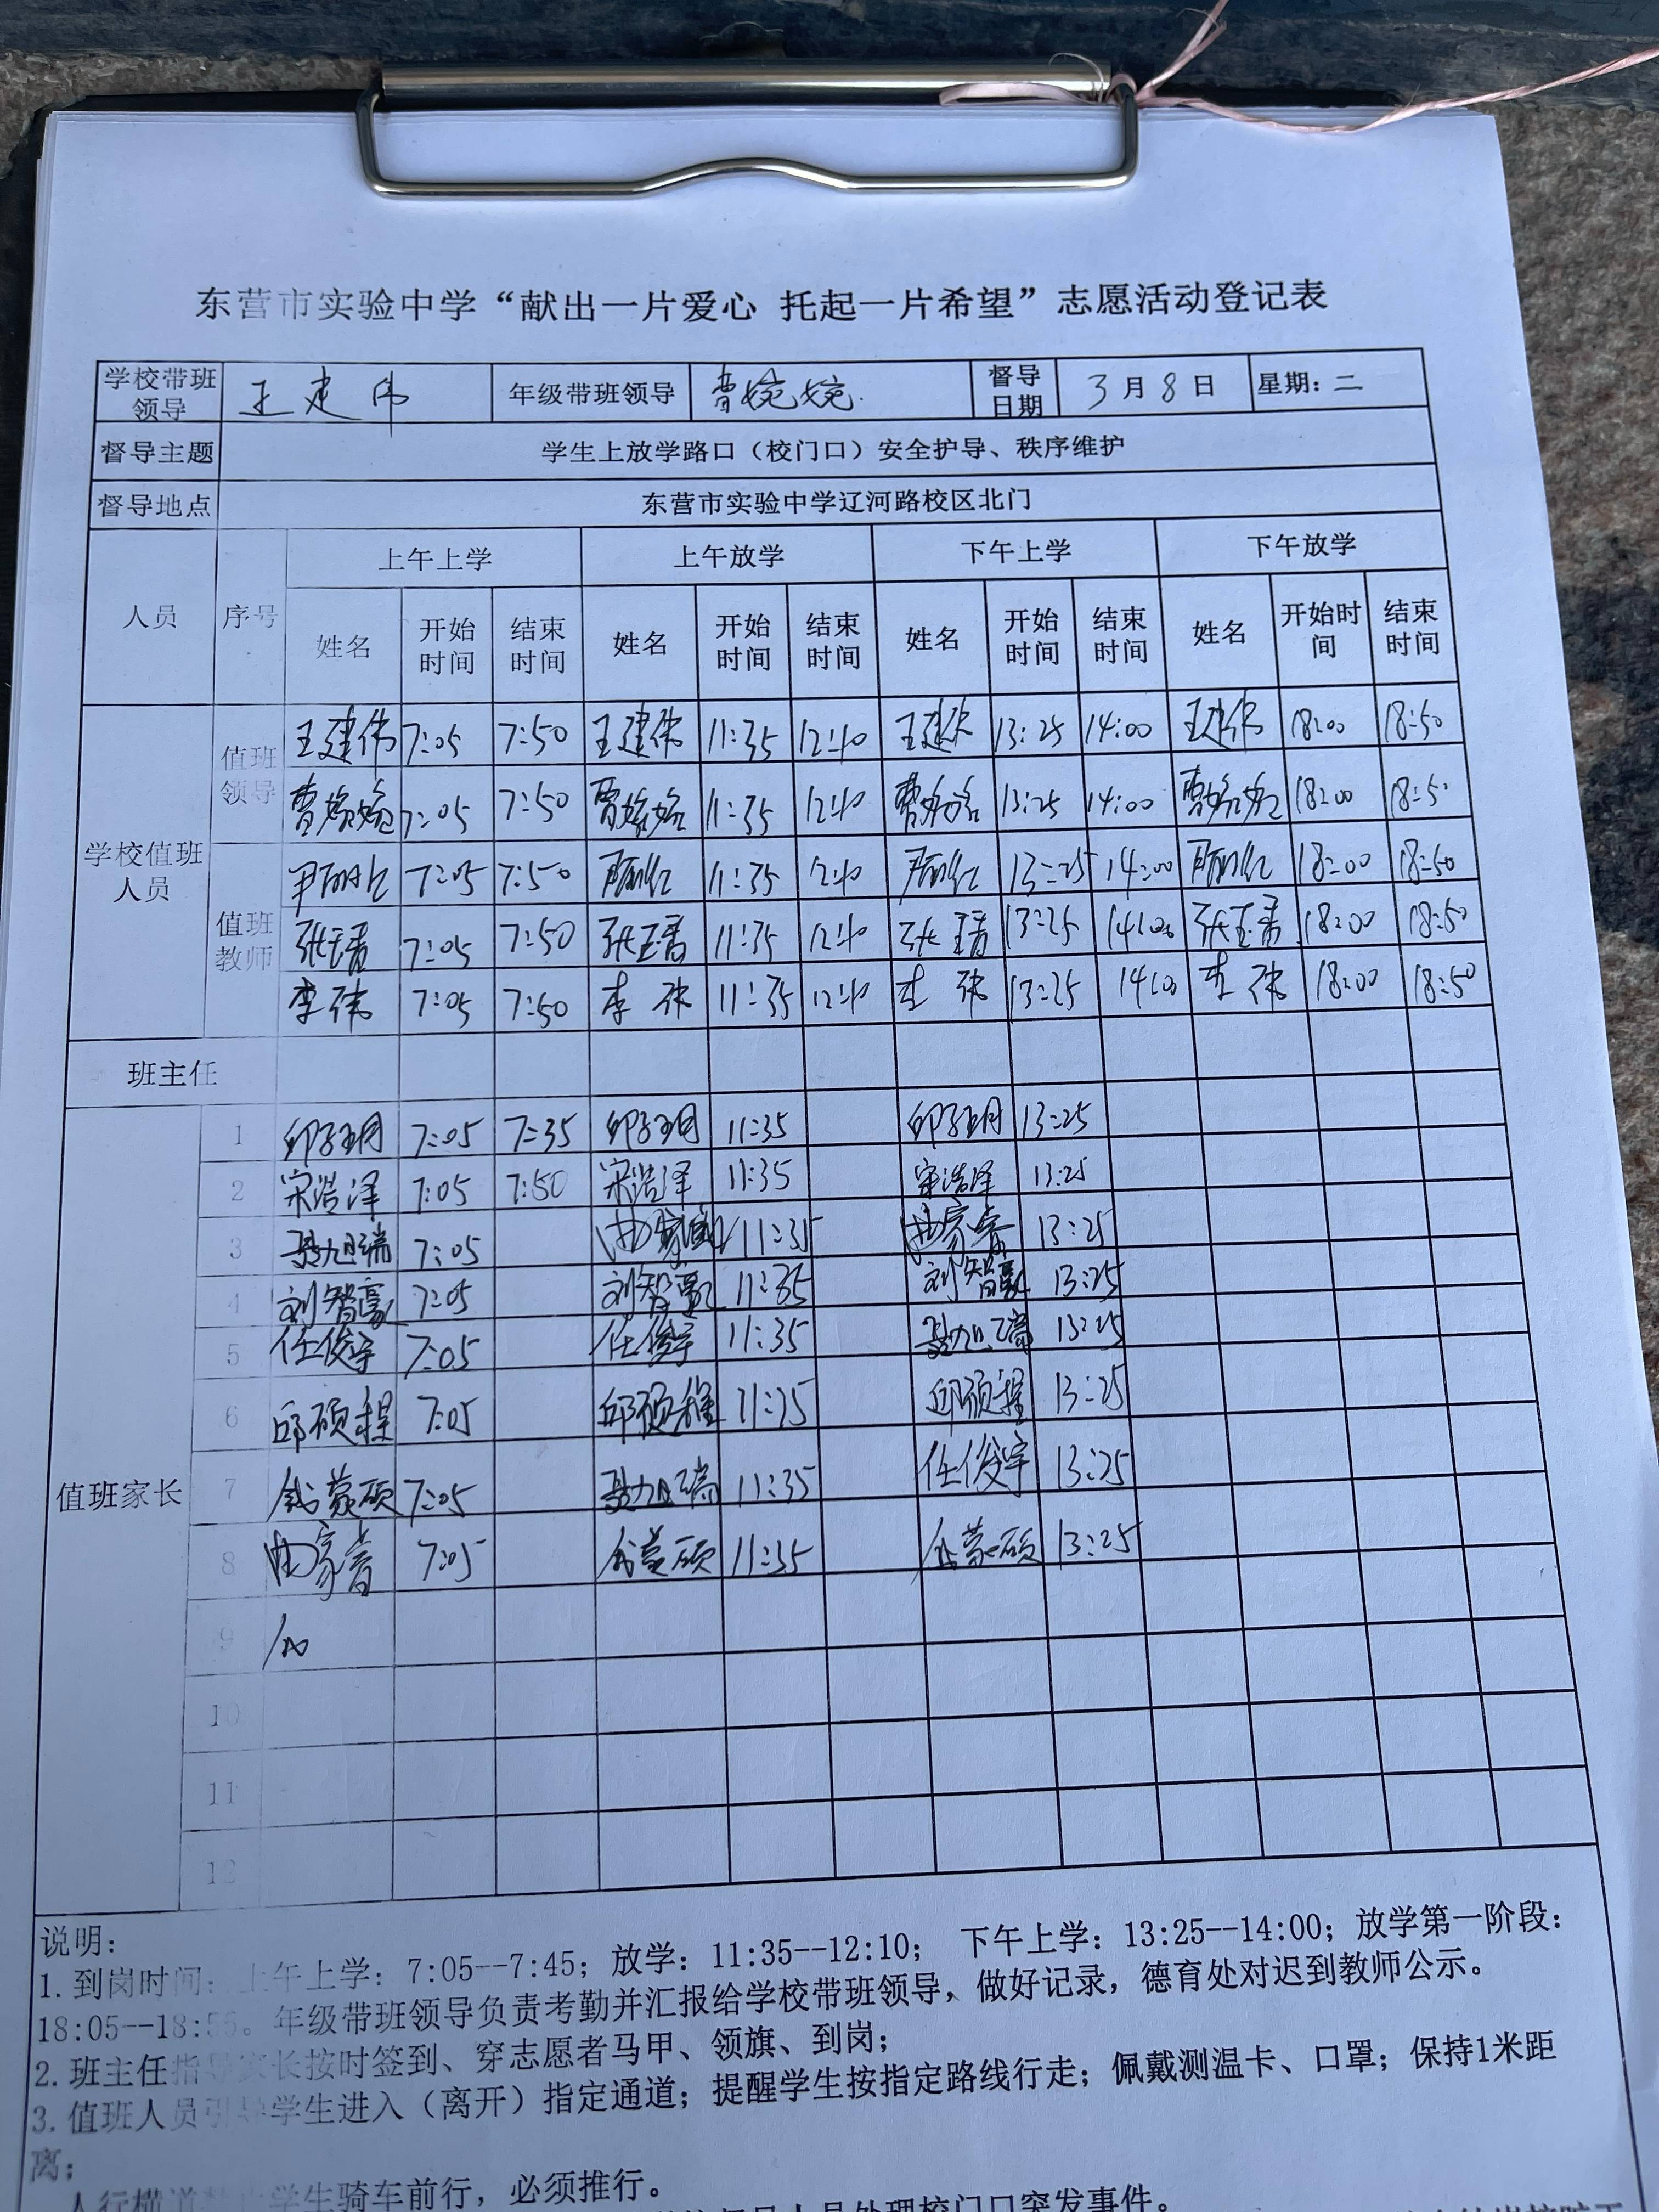 东营市实验中学“献出一片爱心 托起一片希望”志愿活动登记表
学校带班领导 王建伟 年级带班领导 曹婉婉 督导日期 3月8日 星期：二
督导主题 学生上放学路口（校门口）安全护导、秩序维护
督导地点 东营市实验中学辽河路校区北门
人员 序号 上午上学 上午放学 下午上学 下午放学
姓名 开始时间 结束时间 姓名 开始时间 结束时间 姓名 开始时间 结束时间 姓名 开始时间 结束时间
学校值班人员
值班领导 王建伟 7:05 7:50 王建伟 11:35 12:10 王建伟 13:25 14:00 王建伟 18:00 18:50
曹婉婉 7:05 7:50 曹婉婉 11:35 12:10 曹婉婉 13:25 14:00 曹婉婉 18:00 18:5
值班教师 7:05 7:50 11:35 12:10 13:25 14:00 18:00 18:50
7:05 7:50 11:35 12:10 13:25 14:00 18:00 18:50
李伟 7:05 7:50 李伟 11:35 12:10 李伟 13:25 14:00 李伟 18:00 18:50
班主任
值班家长
1 7:05 7:35 11:35 13:25
2 宋浩泽 7:05 7:50 宋浩泽 11:35 宋浩泽 13:25
3 7:05 11:35 13:25
4 刘智豪 7:05 刘智豪 11:35 刘智豪 13:25
5 任俊宇 7:05 任俊宇 11:35 13:25
6 邱硕程 7:05 邱硕程 11:35 邱硕程 13:25
7 7:05 11:35 任俊宇 13:25
8 7:05 11:35 13:25
9
10
11
12
说明：
1.到岗时间：上午上学：7:05--7:45；放学：11:35--12:10； 下午上学：13:25--14:00；放学第一阶段：
18:05--18:55。年级带班领导负责考勤并汇报给学校带班领导，做好记录，德育处对迟到教师公示。
2.班主任指导家长按时签到、穿志愿者马甲、领旗、到岗；
3.值班人员引导学生进入（离开）指定通道；提醒学生按指定路线行走；佩戴测温卡、口罩；保持1米距
离；
人行横道禁止学生骑车前行，必须推行。
人员处理校门口突发事件。